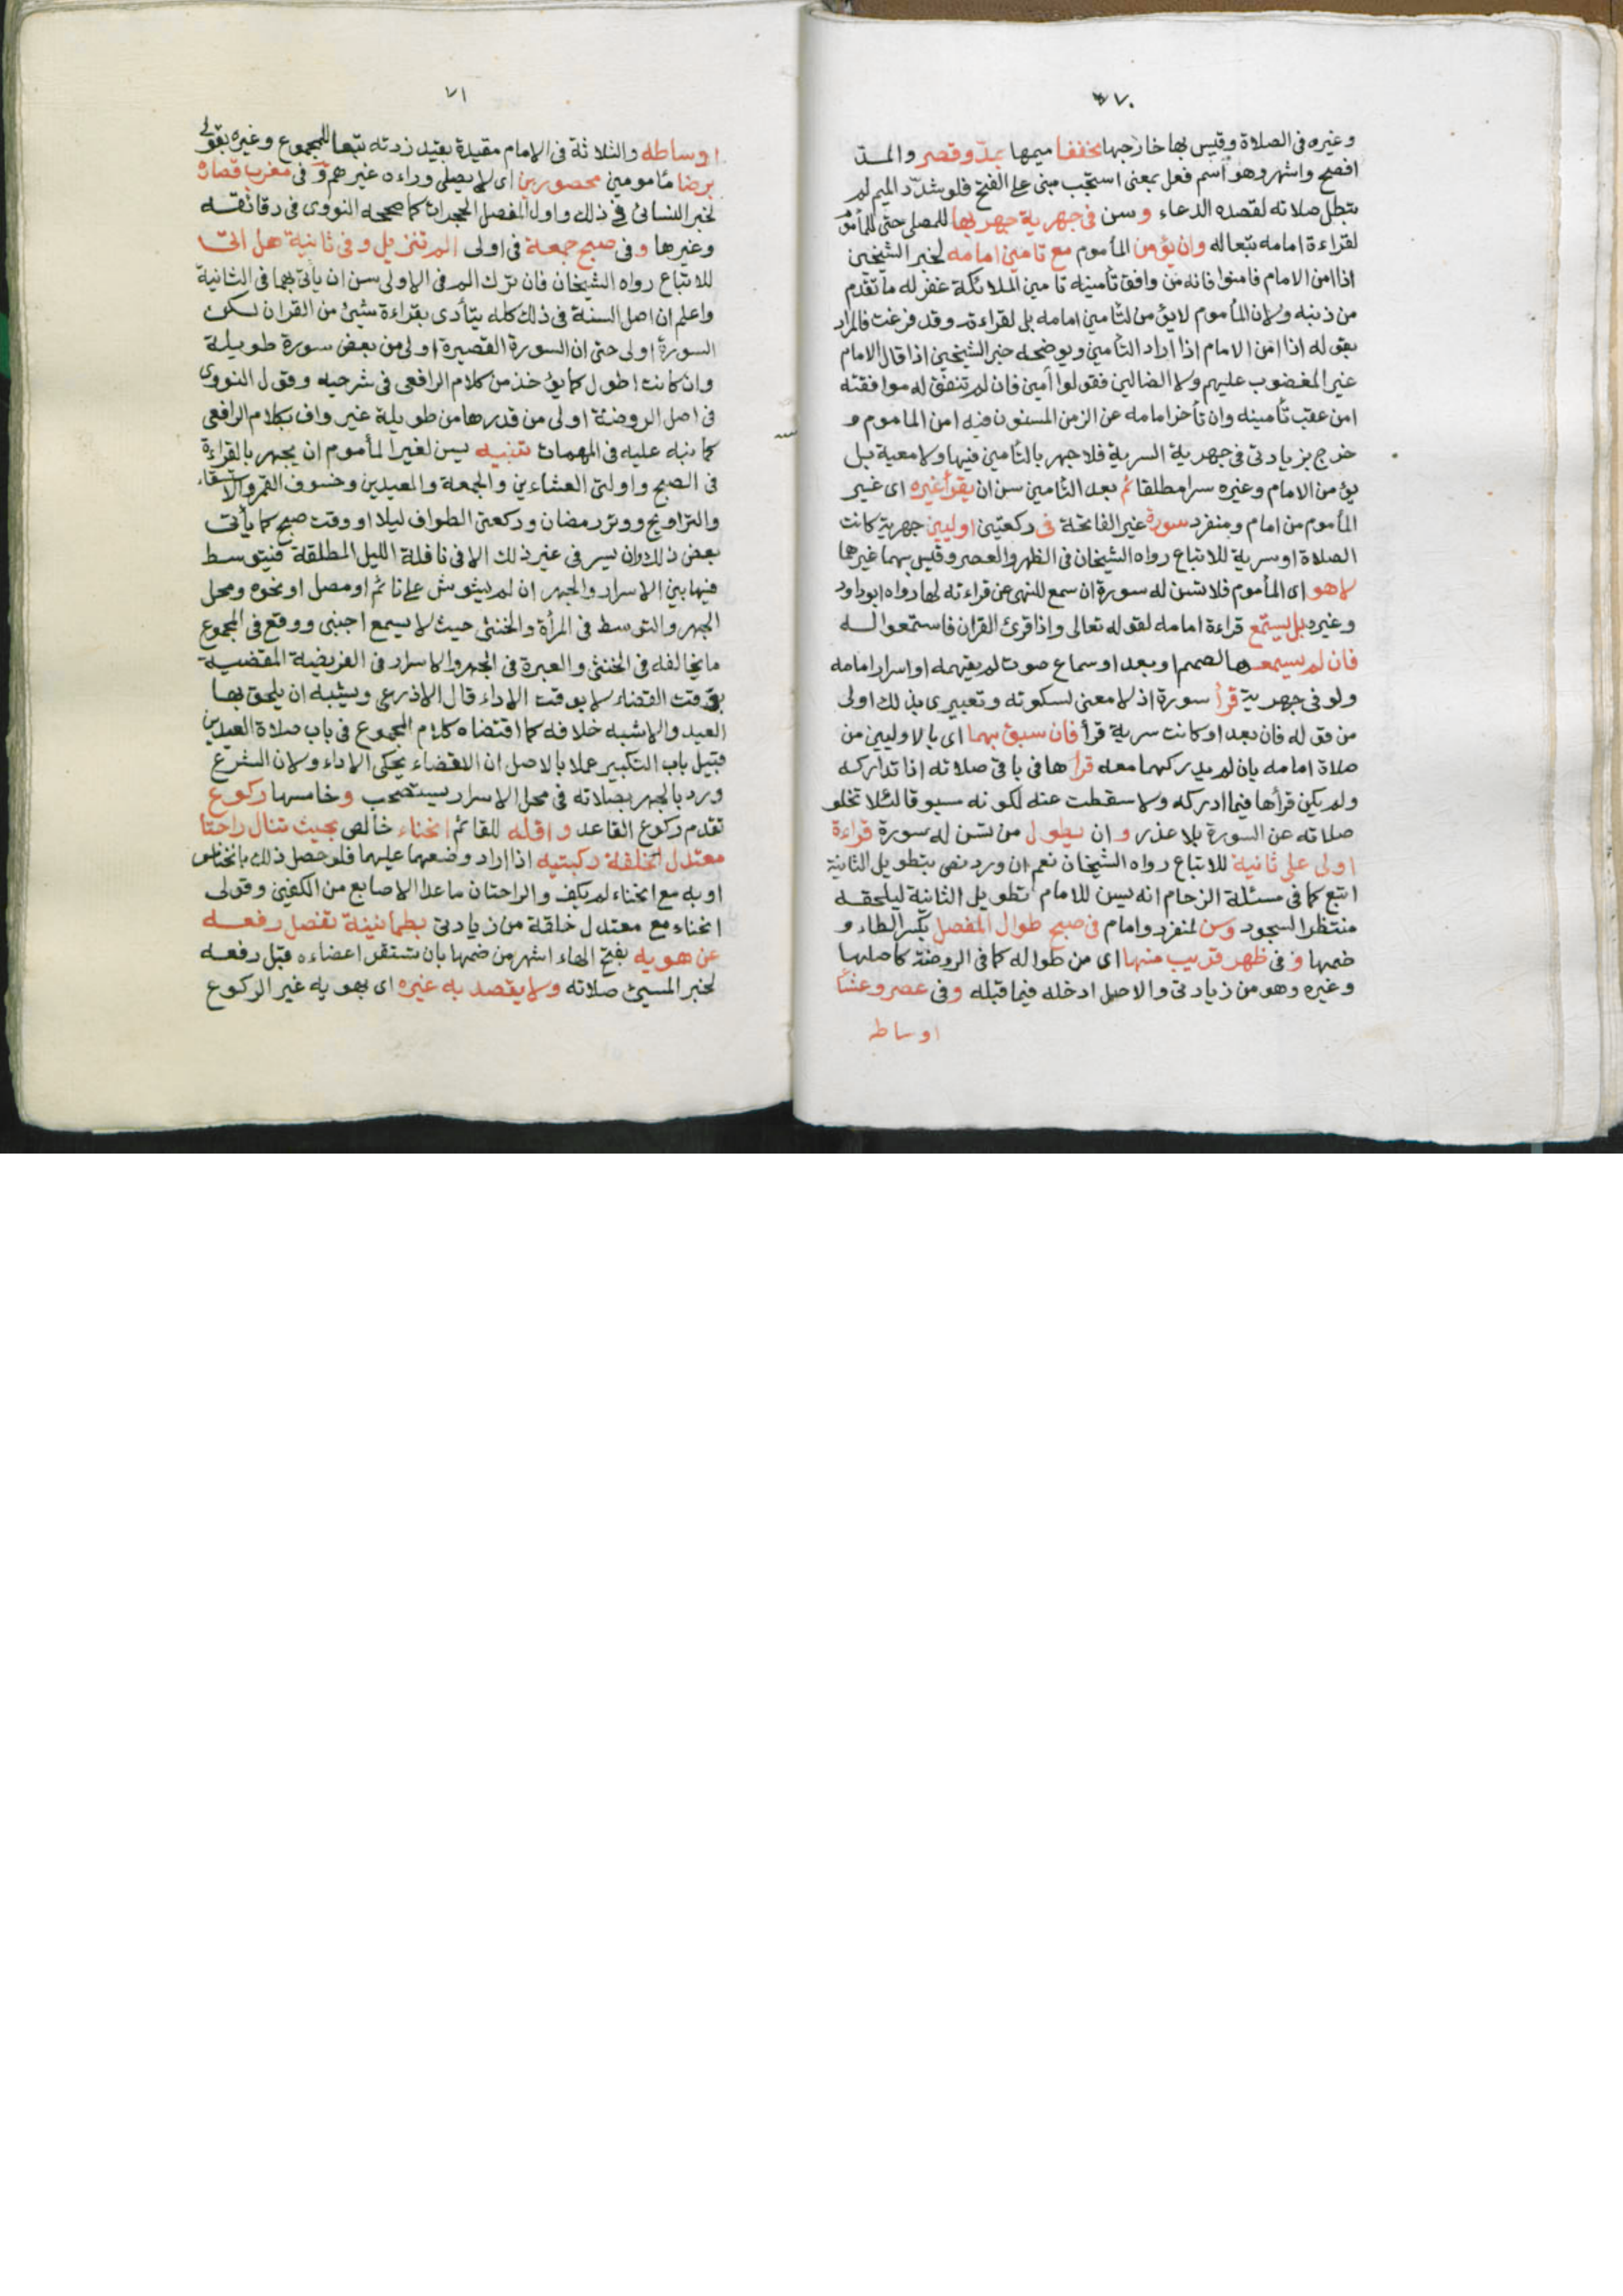 ٧٠
وغيره فى الصلاة وقيس بها خارجها مخففا ميمها بمدّ وقصر والمدّ
افصح واشهر وهو اسم فعل بمعنى استجب مبنى على الفتح فلو شدّد الميم لم
تبطل صلاته لقصده الدعاء وسن فى جهرية جهر بها للمصلى حتى للمأموم
لقراءة امامه تبعا له وان يؤمن المأموم مع تامين امامه لخبر الشيخين
اذا امن الامام فامنوا فانه من وافق تأمينه تامين الملائكة غفر له ما تقدم
من ذنبه ولان المأموم لا يؤمن لتأمين امامه بل لقراءته وقد فرغت فالمراد
بقوله اذا امن الامام اذا اراد التأمين ويوضحه خبر الشيخين اذا قال الامام
غير المغضوب عليهم ولا الضالين فقولوا أمين فان لم تتفق له موافقته
امن عقب تأمينه وان تأخر امامه عن الزمن المسنون فيه امن الماموم و
خرج بزيادتى فى جهرية السرية فلا جهر بالتأمين فيها ولا معية بل
يؤمن الامام وغيره سرا مطلقا ثم بعد التامين سن ان يقرأ غيره اى غير
المأموم من امام ومنفرد سورة غير الفاتحة فى ركعتين اوليين جهرية كانت
الصلاة او سرية للاتباع رواه الشيخان فى الظهر والعصر وقيس بهما غيرهما
لا هو اى المأموم فلا تسن له سورة ان سمع للنهى عن قراءته لها رواه ابوداود
وغيره بل يستمع قراءة امامه لقوله تعالى واذا قرئ القران فاستمعوا له
فان لم يسمعها لصمم او بعد او سماع صوت لم يفهمه او اسرار امامه
ولو فى جهرية قرأ سورة اذ لا معنى لسكوته وتعبيرى بذلك اولى
من قوله فان بعد او كانت سرية قرأ فان سبق بهما اى بالاوليين من
صلاة امامه بان لم يدركهما معه قرأها فى باقى صلاته اذا تداركه
ولم يكن قرأها فيما ادركه ولا سقطت عنه لكونه مسبوقا لئلا تخلو
صلاته عن السورة بلا عذر وان يطول من تسن له سورة قراءة
اولى على ثانية للاتباع رواه الشيخان نعم ان ورد نص بتطويل الثانية
اتبع كما فى مسئلة الزحام انه يسن للامام تطويل الثانية ليلحقه
منتظر السجود وسن لمنفرد وامام فى صبح طوال المفصل بكسر الطاء و
ضمها و فى ظهر قريب منها اى من طواله كما فى الروضة كاصلها
وغيره وهو من زيادتى والاصل ادخله فيما قبله وفى عصر وعشاء
اوساطه
٧١
اوساطه والثلاثة فى الامام مقيدة بقيد زدته تبعا للمجموع وغيره بقولى
برضا مأمومين محصورين اى لا يصلى وراءه غيرهم و فى مغرب قصاره
لخبر النسائى فى ذلك واول المفصل الحجرات كما صححه النووى فى دقائقه
وغيرها وفى صبح جمعة فى اولى الم تنزيل وفى ثانية هل اتى
للاتباع رواه الشيخان فان ترك الم فى الاولى سن ان يأتى بهما فى الثانية
واعلم ان اصل السنة فى ذلك كله يتأدى بقراءة شئ من القران لكن
السورة اولى حتى ان السورة القصيرة اولى من بعض سورة طويلة
وان كانت اطول كما يؤخذ من كلام الرافعى فى شرحيه وقول النووى
فى اصل الروضة اولى من قدرها من طويلة غير واف بكلام الرافعى
كما نبه عليه فى المهمات تنبيه يسن لغير المأموم ان يجهر بالقراءة
فى الصبح واولتى العشاءين والجمعة والعيدين وخسوف القمر والاستسقاء
والتراويح ووتر رمضان وركعتى الطواف ليلا او وقت صبح كما يأتى
بعض ذلك وان يسر فى غير ذلك الا فى نافلة الليل المطلقة فيتوسط
فيها بين الاسرار والجهر ان لم يشوش على نائم او مصل او نحوه ومحل
الجهر والتوسط فى المرأة والخنثى حيث لا يسمع اجنبى ووقع فى المجموع
ما يخالفه فى الخنثى والعبرة فى الجهر والاسرار فى الفريضة المقضية
بوقت القضاء لا بوقت الاداء قال الاذرعى ويشبه ان يلحق بها
العيد والاشبه خلافه كما اقتضاه كلام المجموع فى باب صلاة العيدين
قبيل باب التكبير عملا بالاصل ان القضاء يحكى الاداء ولان الشرع
ورد بالجهر بصلاته فى محل الاسرار يستصحب وخامسها ركوع
تقدم ركوع القاعد واقله للقائم انحناء خالص بحيث تنال راحتا
معتدل الخلقة ركبتيه اذا اراد وضعهما عليهما فلو حصل ذلك بانخناس
او به مع انحناء لم يكف والراحتان ما عدا الاصابع من الكفين وقولى
انحناء مع معتدل خلقة من زيادتى بطمأنينة تفصل رفعه
عن هويه بفتح الهاء اشهر من ضمها بان تستقر اعضاءه قبل رفعه
لخبر المسئ صلاته ولا يقصد به غيره اى بهويه غير الركوع